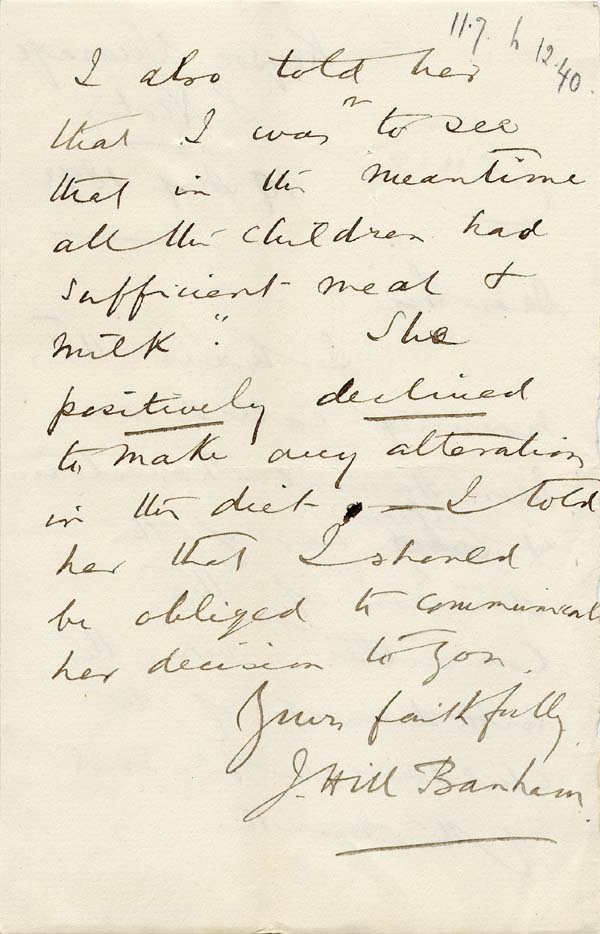 11.7. h 12.40.
I also told her
that I was " to see
that in the meantime
all the children had
sufficient meat &
milk". She
positively declined
to make any alteration
in the diet - — I told
her that I should
be obliged to communicate
her decision to you.
Yours faithfully
J. Hill Banham.